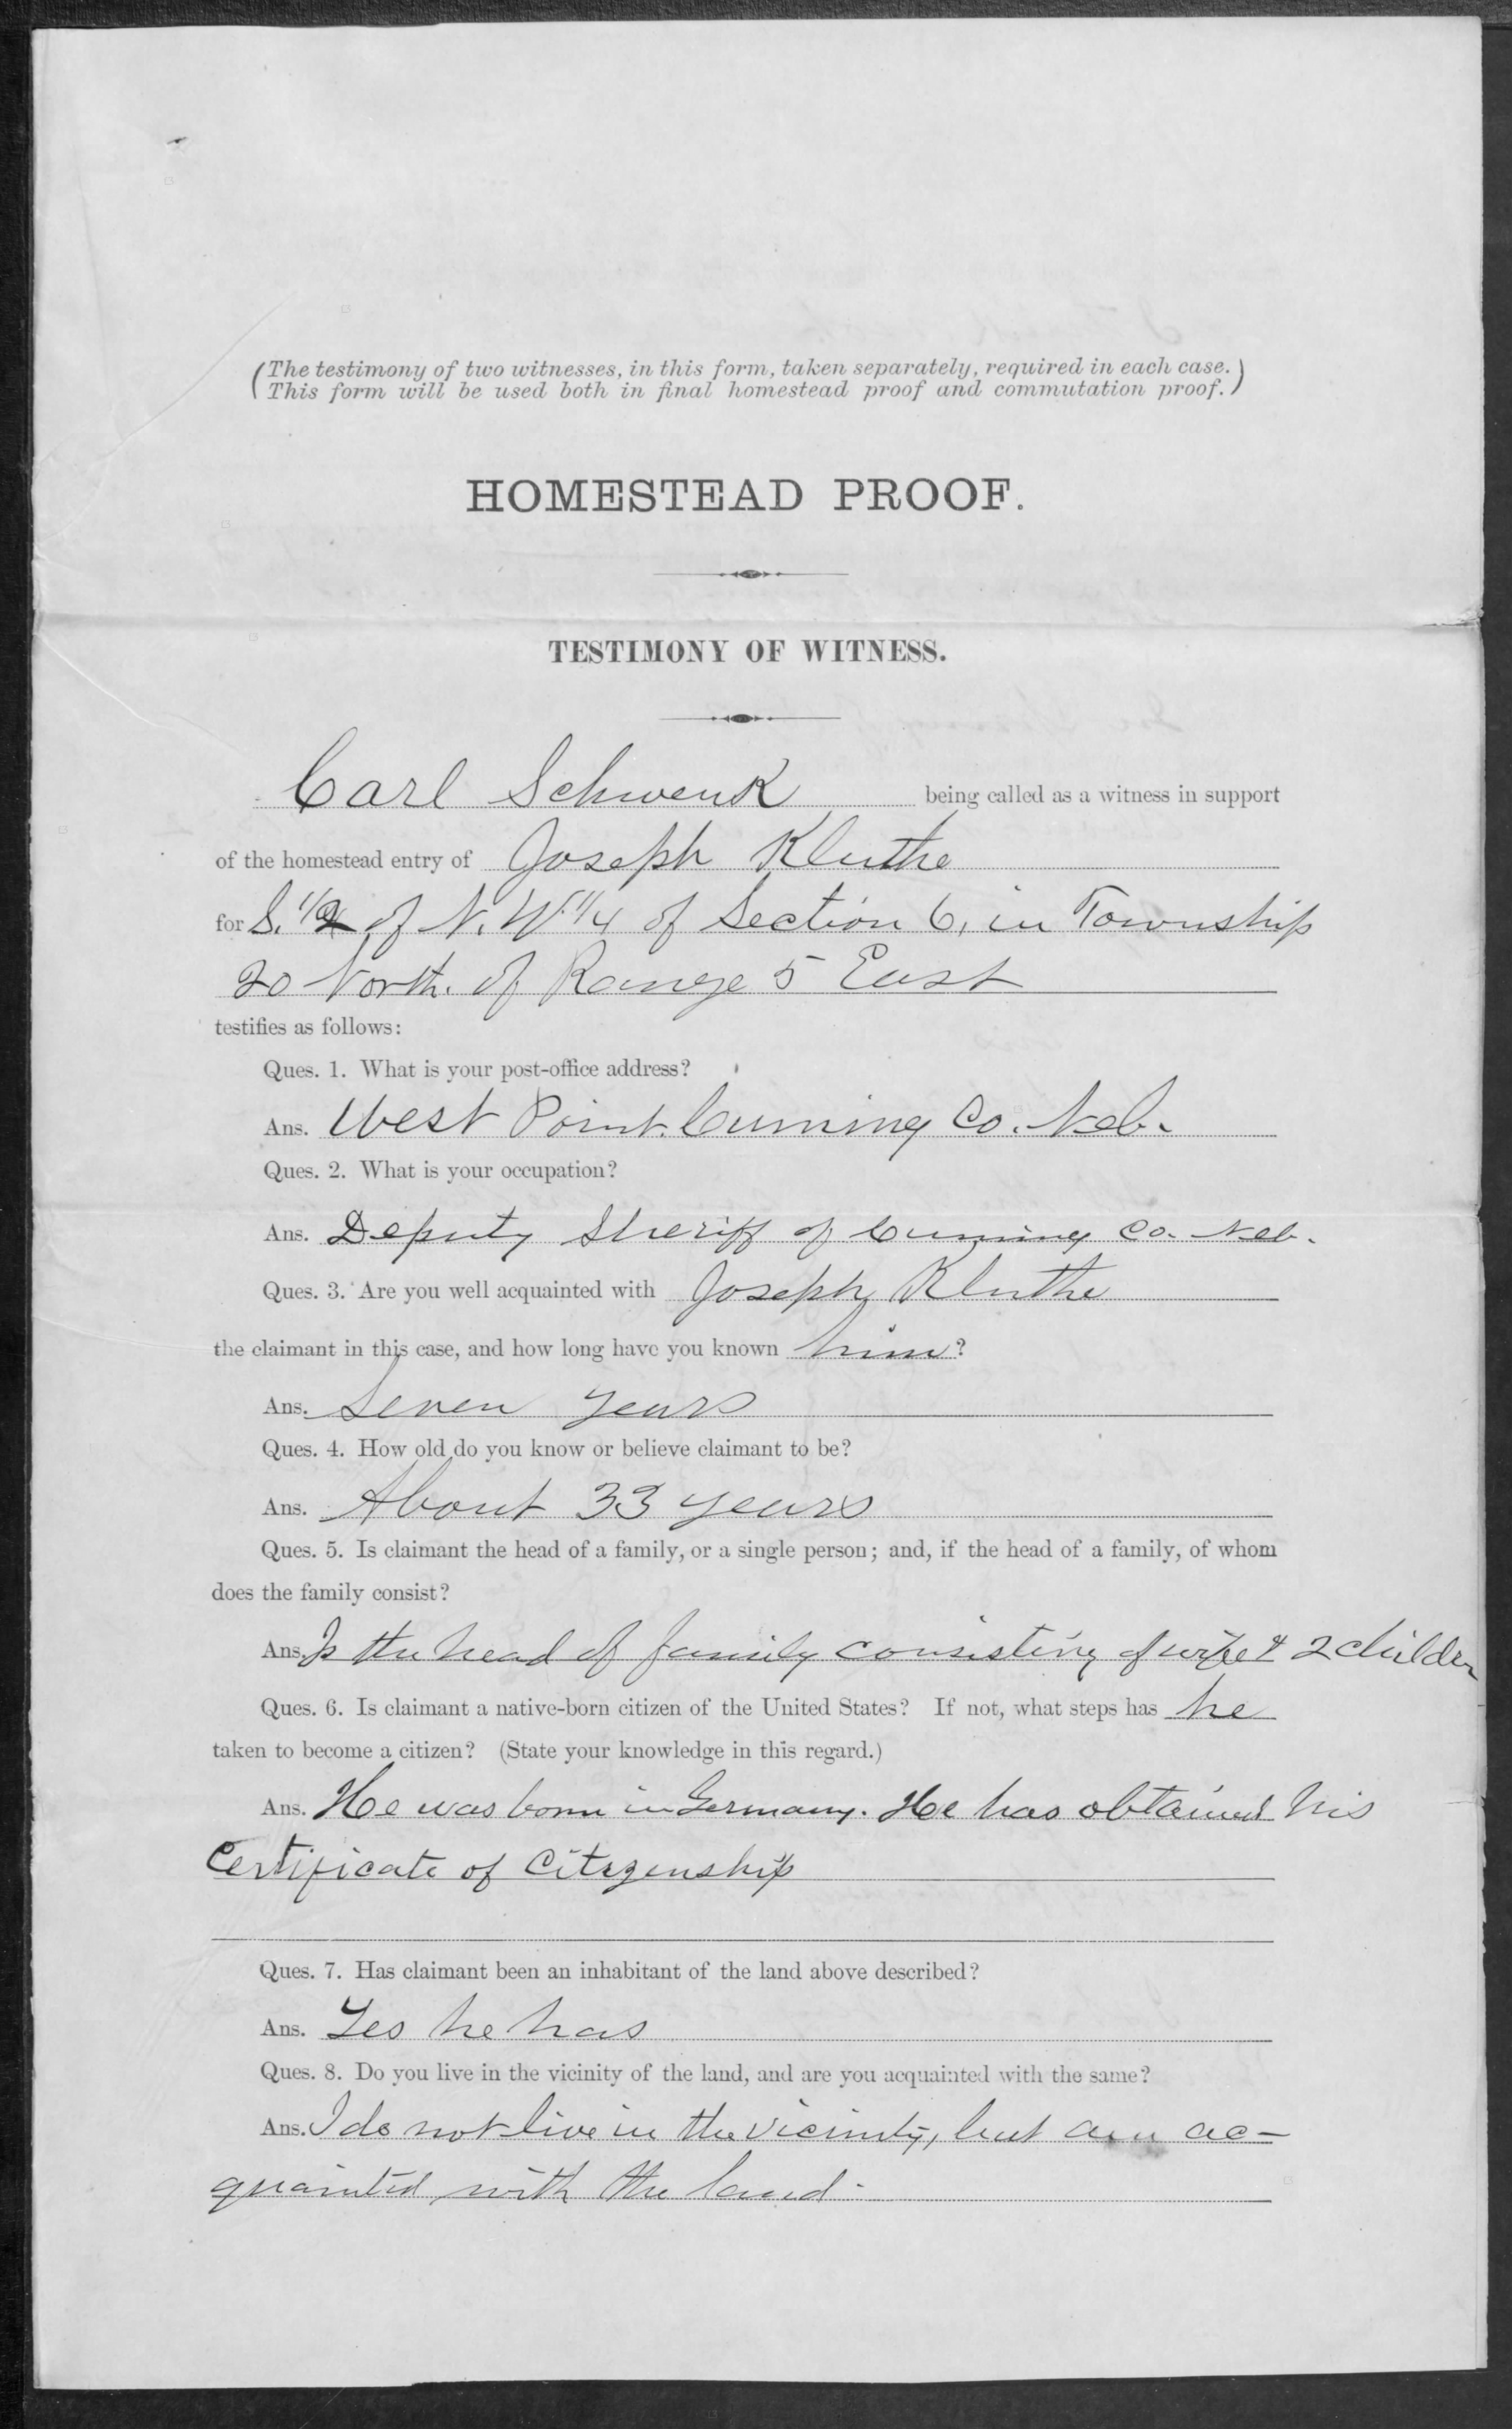 (The testimony of two witnesses, in this form, taken separately, required in each case.)
(This form will be used both in final homestead proof and commutation proof.)
HOMESTEAD PROOF.
TESTIMONY OF WITNESS.
Carl Schwenk being called as a witness in support
of the homestead entry of Joseph Kluthe
for S. 1/2 of N. W. 1/4 of Section 6, in Township
20 North. of Range 5 East
testifies as follows:
Ques. 1. What is your post-office address?
Ans. West Point. Cuming Co. Neb.
Ques. 2. What is your occupation?
Ans. Deputy Sheriff of Cuming Co. Neb.
Ques. 3. Are you well acquainted with Joseph Kluthe
the claimant in this case, and how long have you known him?
Ans. Seven years
Ques. 4. How old do you know or believe claimant to be?
Ans. About 33 years
Ques. 5. Is claimant the head of a family, or a single person; and, if the head of a family, of whom
does the family consist?
Ans. Is the head of family consisting of wife & 2 childen
Ques. 6. Is claimant a native-born citizen of the United States? If not, what steps has he
taken to become a citizen? (State your knowledge in this regard.)
Ans. He was born in Germany. He has obtained his
Certificate of Citizenship
Ques. 7. Has claimant been an inhabitant of the land above described?
Ans. Yes he has
Ques. 8. Do you live in the vicinity of the land, and are you acquainted with the same?
Ans. I do not live in the vicinity, but am ac-
quainted with the land.